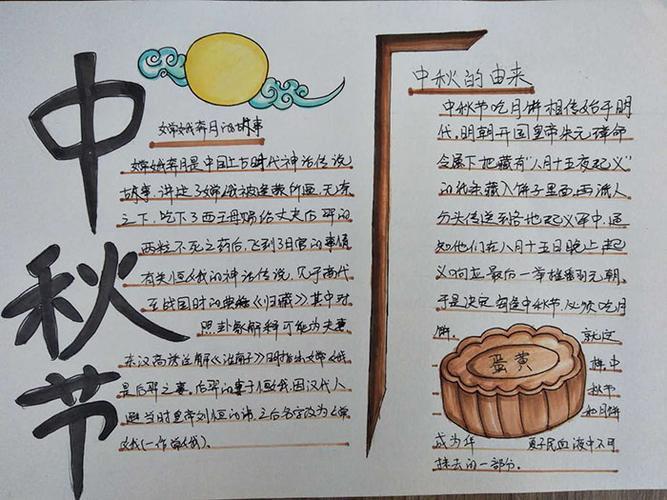 中秋节
嫦娥奔月的故事
嫦娥奔月是中国上古时代神话传说
故事,讲述了嫦娥被逢蒙所逼,无奈
之下,吃下了西王母赐给丈夫后羿的
两粒不死之药后,飞到了月宫的事情
有关姮娥的神话传说,见于商代
至战国时的《归藏》其中对
卦象解释可能为夫妻
东汉高诱注解《淮南子》明指出嫦娥
是后羿之妻。后羿的妻子姮娥,因汉代人
避当时皇帝刘恒的讳,之后名字改为嫦
娥(一作常娥)。
中秋的由来
中秋节吃月饼相传始于明
代,明朝开国皇帝朱元璋命
令属下把藏有"八月十五夜起义"
的纸条藏入饼子里面,再派人
分头传送到各地起义军中,通
知他们在八月十五日晚上起
义响应,最后一举推翻了元朝。
于是决定每逢中秋节,必须吃月
饼。 就这
样,中
秋节
和月饼
蛋黄
成为华 夏子民血液中不可
抹去的一部分。